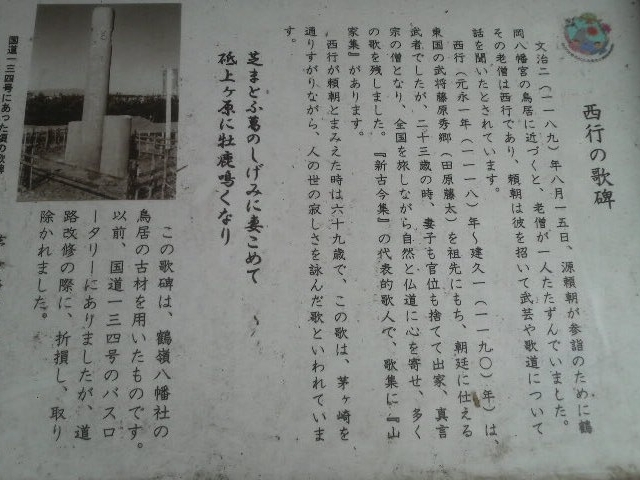 西行の歌碑
文治二(一一八九)年八月一五日、源頼朝が参詣のために鶴
岡八幡宮の鳥居に近づくと、老僧が一人たたずんでいました。
その老僧は西行であり、頼朝は彼を招いて武芸や歌道について
話を聞いたとされています。
西行(元永一年(一一一八)年～建久一(一一九〇)年)は、
東国の武将藤原秀郷(田原藤太)を祖先にもち、朝廷に仕える
武者でしたが、二十三歳の時、妻子も官位も捨てて出家、真言
宗の僧となり、全国を旅しながら自然と仏道に心を寄せ、多く
の歌を残しました。『新古今集』の代表的歌人で、歌集に『山
家集』があります。
西行が頼朝とまみえた時は六十九歳で、この歌は、茅ヶ崎を
通りすがりながら、人の世の寂しさを詠んだ歌といわれていま
す。
芝まとふ葛のしげみに妻こめて
砥上ヶ原に牡鹿鳴くなり
この歌碑は、鶴嶺八幡社の
鳥居の古材を用いたものです。
以前、国道一三四号のバスロ
ータリーにありましたが、道
路改修の際に、折損し、取り
除かれました。
国道一三四号にあった頃の歌碑